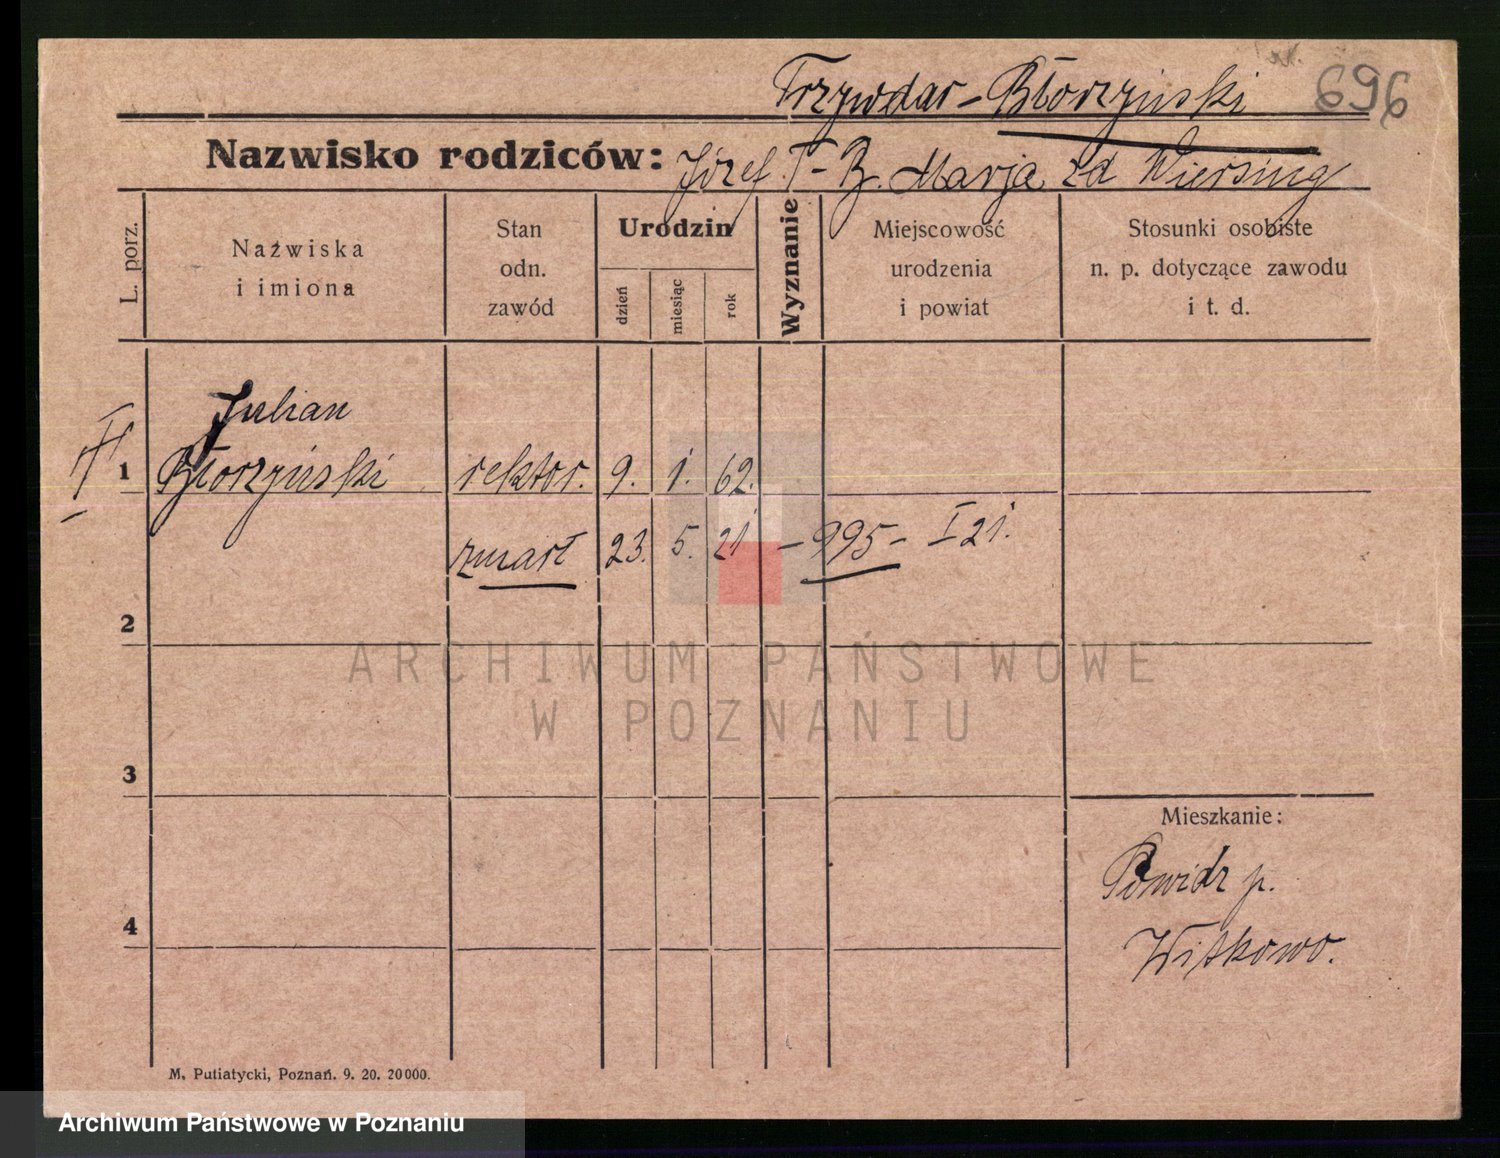 Trzywdar-Błorzyński 696
Nazwisko rodziców: Józef T-B. Marja zd Wiersing
L. porz.
Nazwiska
i imiona
Stan
odn.
zawód
Urodzin
dzień
miesiąc
rok
Wyznanie
Miejscowość
urodzenia
i powiat
Stosunki osobiste
n. p. dotyczące zawodu
i t. d.
Julian
1 Błorzyński rektor. 9. 1. 62.
zmarł 23. 5. 21 - 995- I 21.
2
ARCHIWUM PAŃSTWOWE
W POZNANIU
3
Mieszkanie:
Powidz p.
4
Witkowo.
M. Putiatycki, Poznań. 9. 20. 20000.
Archiwum Państwowe w Poznaniu